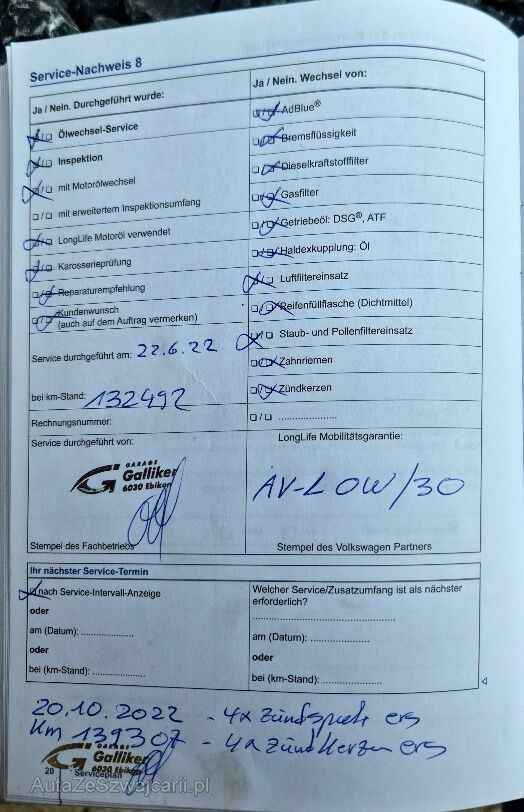 Service-Nachweis 8
Ja / Nein. Durchgeführt wurde:
Ölwechsel-Service
Inspektion
mit Motorölwechsel
mit erweitertem Inspektionsumfang
LongLife Motoröl verwendet
Karosserieprüfung
Reparaturempfehlung
Kundenwunsch
(auch auf dem Auftrag vermerken)
Service durchgeführt am: 22.6.22
bei km-Stand: 132492
Rechnungsnummer:
Service durchgeführt von:
GARAGE
Galliker
6030 Ebikon
Stempel des Fachbetriebs
Ja / Nein. Wechsel von:
AdBlue®
Bremsflüssigkeit
Dieselkraftstofffilter
Gasfilter
Getriebeöl: DSG®, ATF
Haldexkupplung: Öl
Luftfiltereinsatz
Reifenfüllflasche (Dichtmittel)
Staub- und Pollenfiltereinsatz
Zahnriemen
Zündkerzen
☐/☐ ....................
LongLife Mobilitätsgarantie:
AV-L 0W/30
Stempel des Volkswagen Partners
Ihr nächster Service-Termin
nach Service-Intervall-Anzeige
oder
am (Datum): ..................
oder
bei (km-Stand): ..................
Welcher Service/Zusatzumfang ist als nächster
erforderlich?
..................................................
am (Datum): ....................
oder
bei (km-Stand): ....................
20.10.2022 - 4x Zündspule ers
Km 139307 - 4x Zündkerzen ers
GARAGE
Galliker
6030 Ebikon
20 Serviceplan
AutaZeSzwajcarii.pl